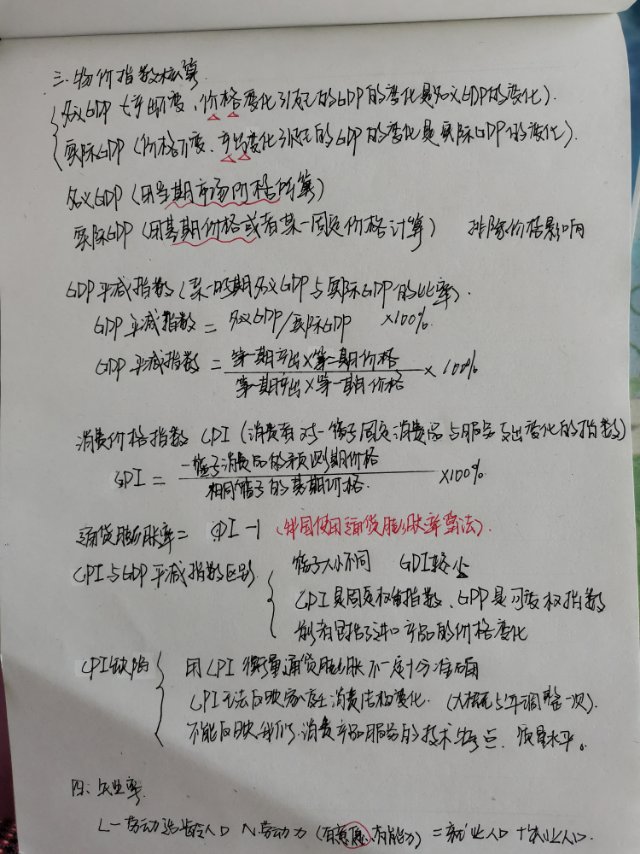 三、物价指数核算
名义GDP(产出不变、价格变化引起的GDP的变化是名义GDP的变化).
实际GDP(价格不变、产出变化引起的GDP的变化是实际GDP的变化).
名义GDP(用当期市场价格所算)
实际GDP(用基期价格或者某一固定价格计算) 排除价格影响
GDP平减指数(某一时期名义GDP与实际GDP的比率).
GDP平减指数 = 名义GDP/实际GDP ×100%.
GDP平减指数 = 第一期产出×第二期价格 × 100%
第一期产出×第一期价格
消费价格指数 CPI (消费者对一篮子固定消费品与服务支出变化的指数)
CPI = 一篮子消费品的预测期价格 ×100%
相同篮子的基期价格.
通货膨胀率 = CPI -1 (韩国使用通货膨胀率算法).
CPI与GDP平减指数区别 篮子大小不同 CPI较小
CPI是固定权重指数、GDP是可变权指数
前者包括了进口产品的价格变化
CPI缺陷 用CPI衡量通货膨胀不一定十分准确
CPI无法反映家庭消费结构变化. (大概5年调整一次).
不能反映我们消费产品服务的技术特点、质量水平。
四、失业率
L—劳动适龄人口 N劳动力 (有意愿,有能力) = 就业人口 + 失业人口.